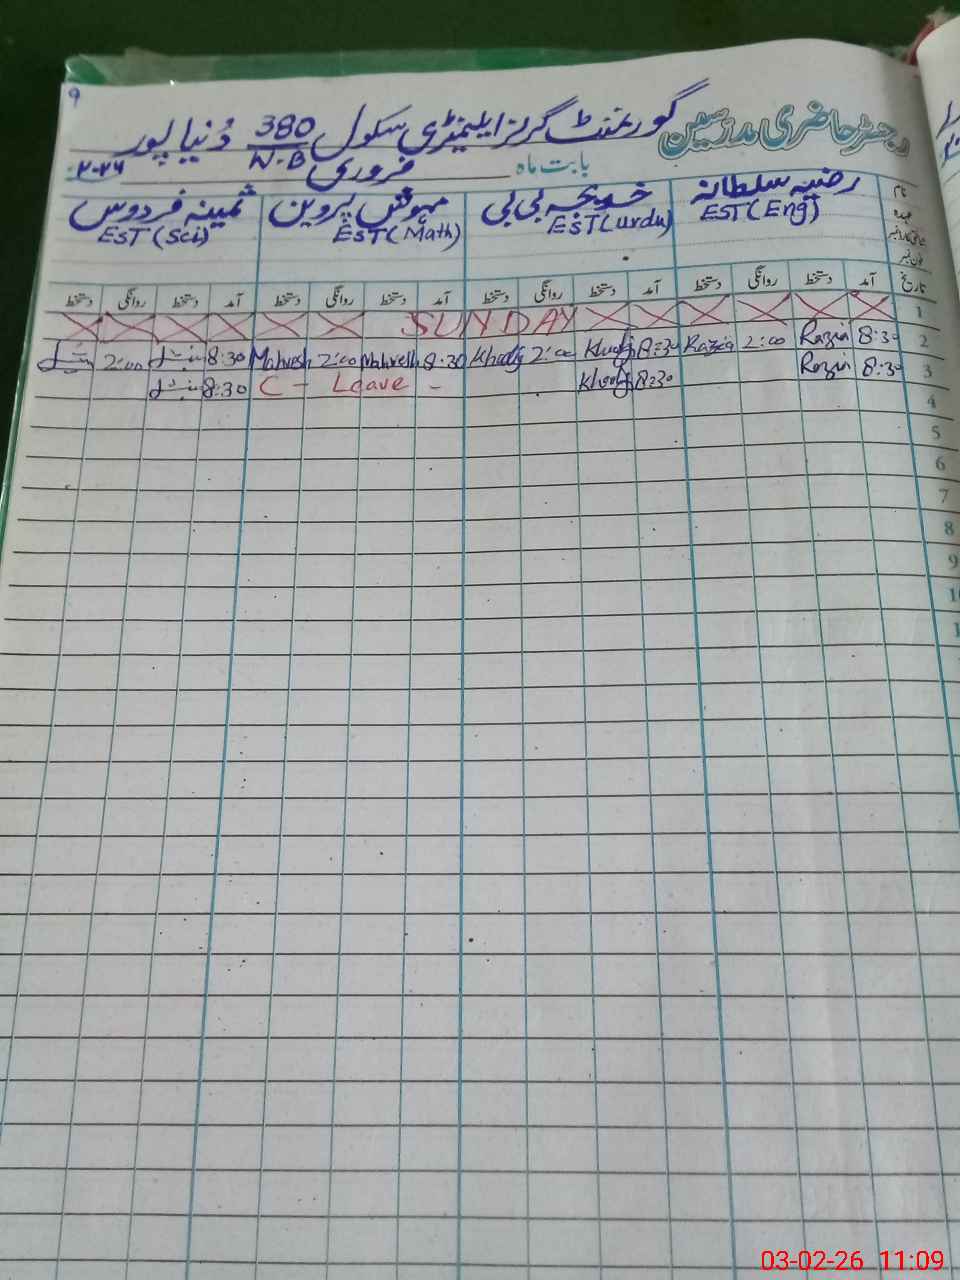 9
رجسٹر حاضری مدرسین گورنمنٹ گرلز ایلیمنٹری سکول 380 W.B دُنیا پور
بابت ماہ فروری ۲-۲۶
نام رضیہ سلطانہ خدیجہ بی بی مہوش پروین ثمینہ فردوس
عہدہ EST(Eng) EST(urdu) EST(Math) EST(Sci)
شناختی کارڈ نمبر
فون نمبر
تاریخ آمد دستخط روانگی دستخط آمد دستخط روانگی دستخط آمد دستخط روانگی دستخط آمد دستخط روانگی دستخط
1 SUNDAY
2 8:30 Razia 2:00 Razia 8:30 Khadij 2:00 Khadij 8:30 Mahwesh 2:00 Mahwesh 8:30 2:00
3 8:30 Razia 8:30 Khadij C - Leave - 8:30
4
5
6
7
8
9
03-02-26 11:09